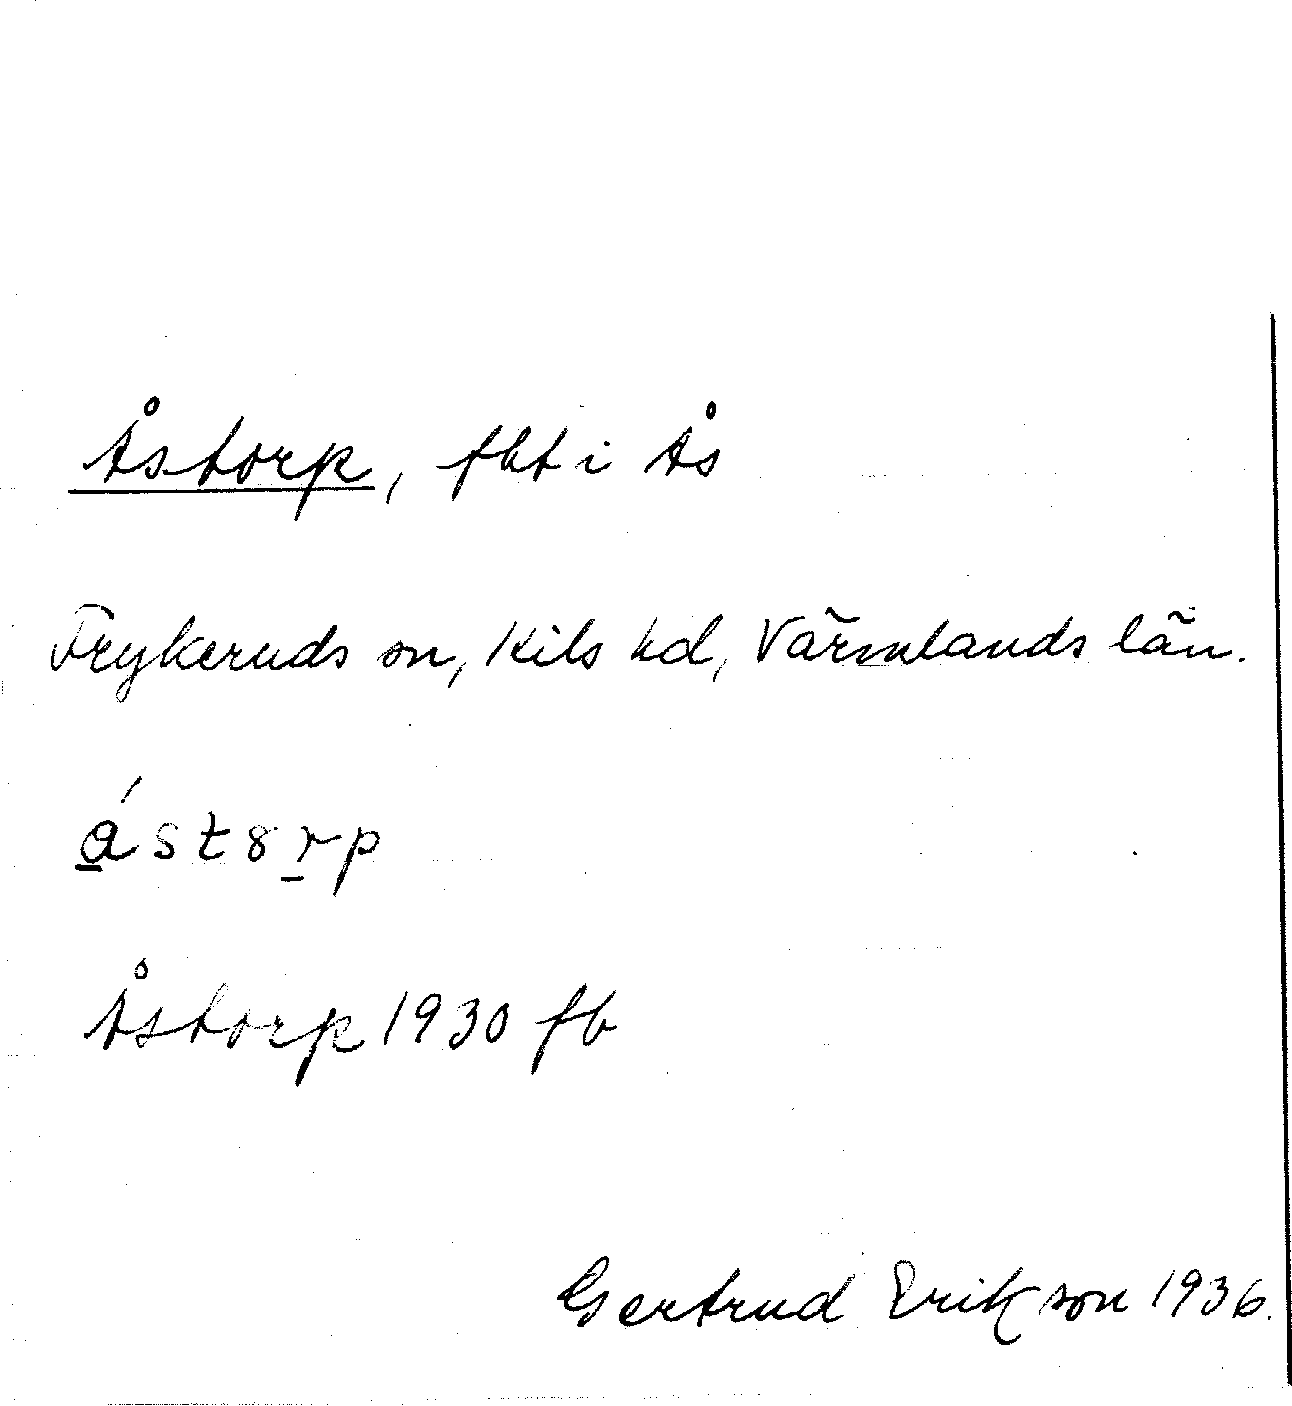 Åstorp, fbt i Ås
Frykeruds sn, Kils hd, Värmlands län.
ást8rp
Åstorp 1930 fb
Gertrud Erikson 1936.